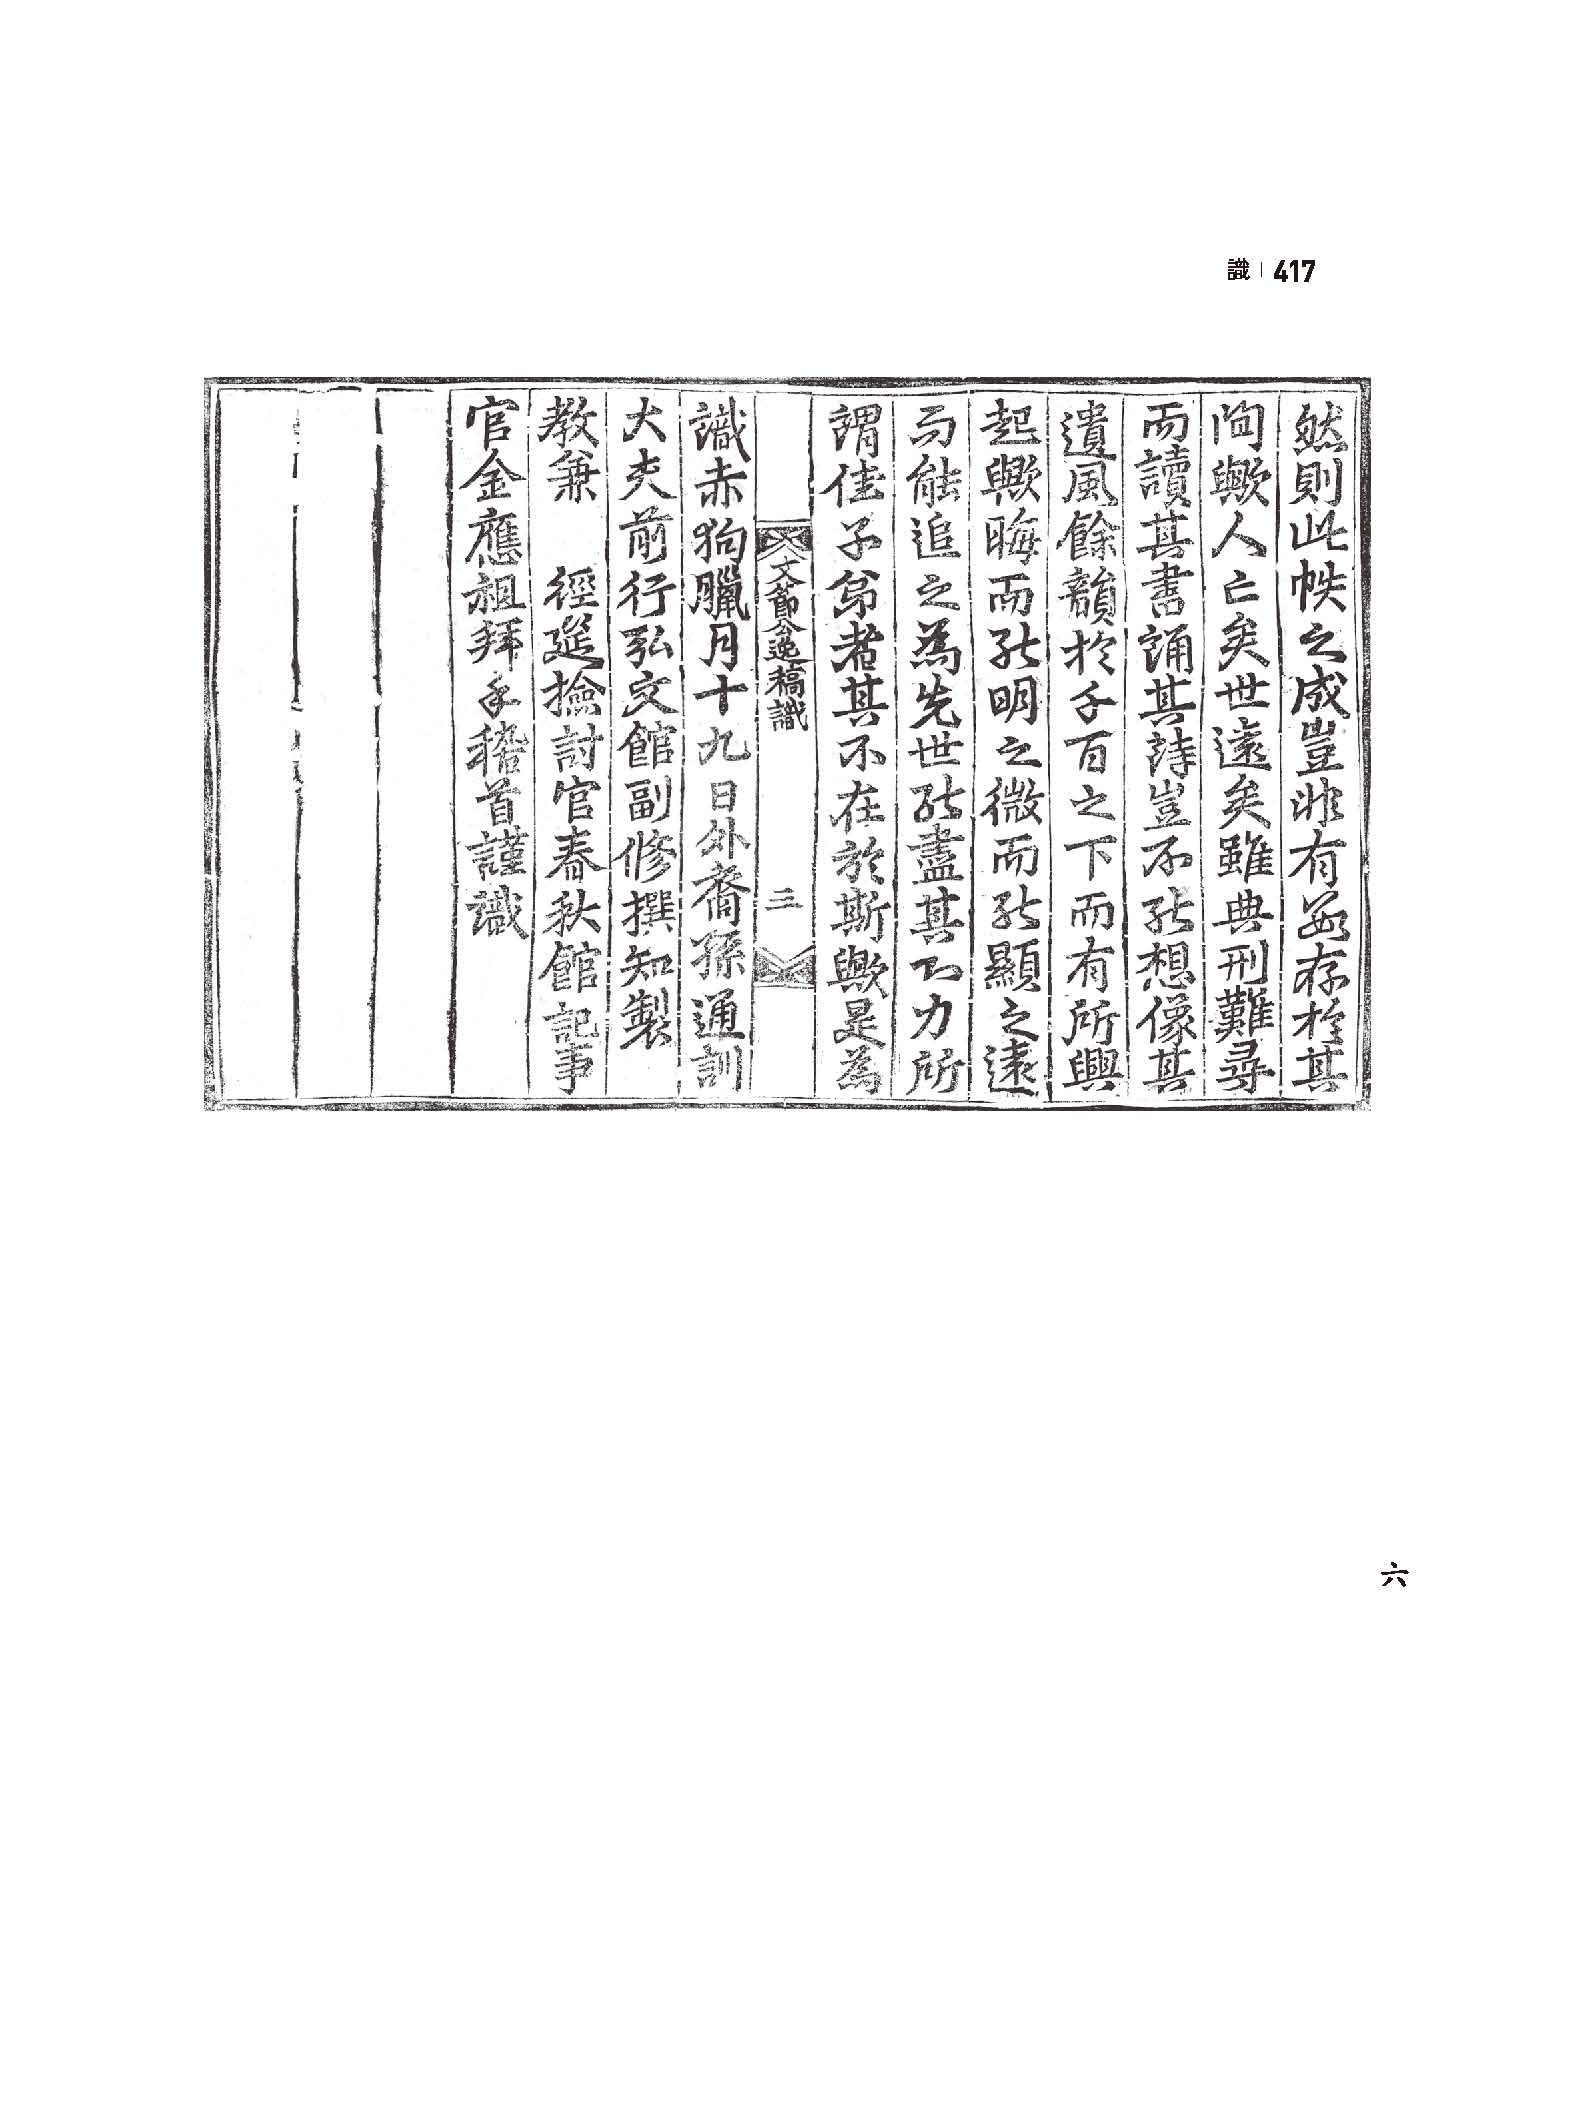 識 | 417
然則此帙之成豈非有數存於其
間歟人亡矣世遠矣雖典刑難尋
而讀其書誦其詩豈不能想像其
遺風餘韻於千百之下而有所興
起歟晦而能明之微而能顯之遠
而能追之為先世能盡其功力所
謂佳子弟者其不在於斯歟是為
文節公逸稿識 三
識赤狗臘月十九日外裔孫通訓
大夫前行弘文館副修撰知製
教兼 經筵檢討官春秋館記事
官金應祖拜手稽首謹識
六